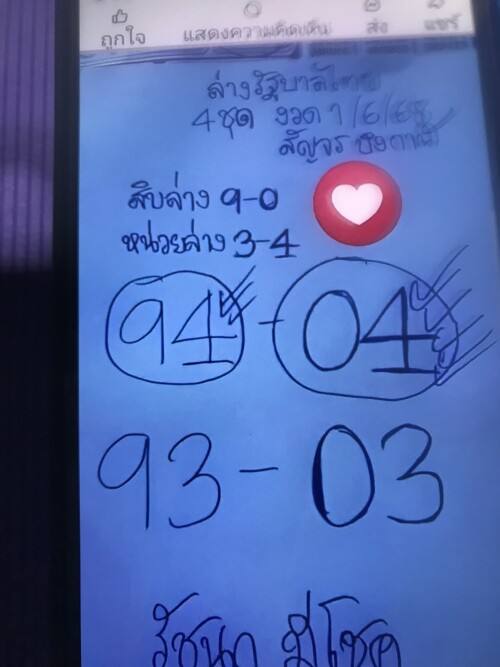 ถูกใจ แสดงความคิดเห็น ส่ง แชร์
ล่างรัฐบาลไทย
4ชุด งวด 1/6/68
สัญจร
สิบล่าง 9-0
หน่วยล่าง 3-4
94 - 04
93 - 03
รัชนก มีโชค